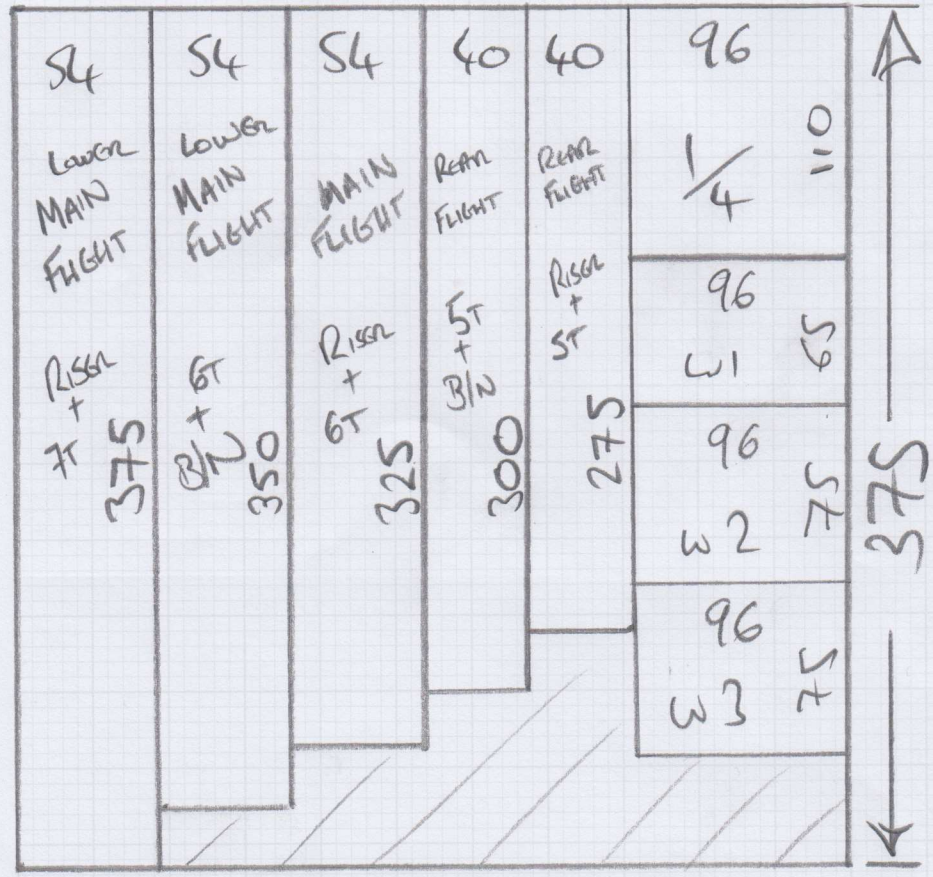 54
LOWER
MAIN
FLIGHT
RISER
+
7T
375
54
LOWER
MAIN
FLIGHT
6T
+
B/N
350
54
MAIN
FLIGHT
RISER
+
6T
325
40
REAR
FLIGHT
5T
+
B/N
300
40
REAR
FLIGHT
RISER
+
5T
275
96
1/4
110
96
W1
65
96
W2
75
96
W3
75
375